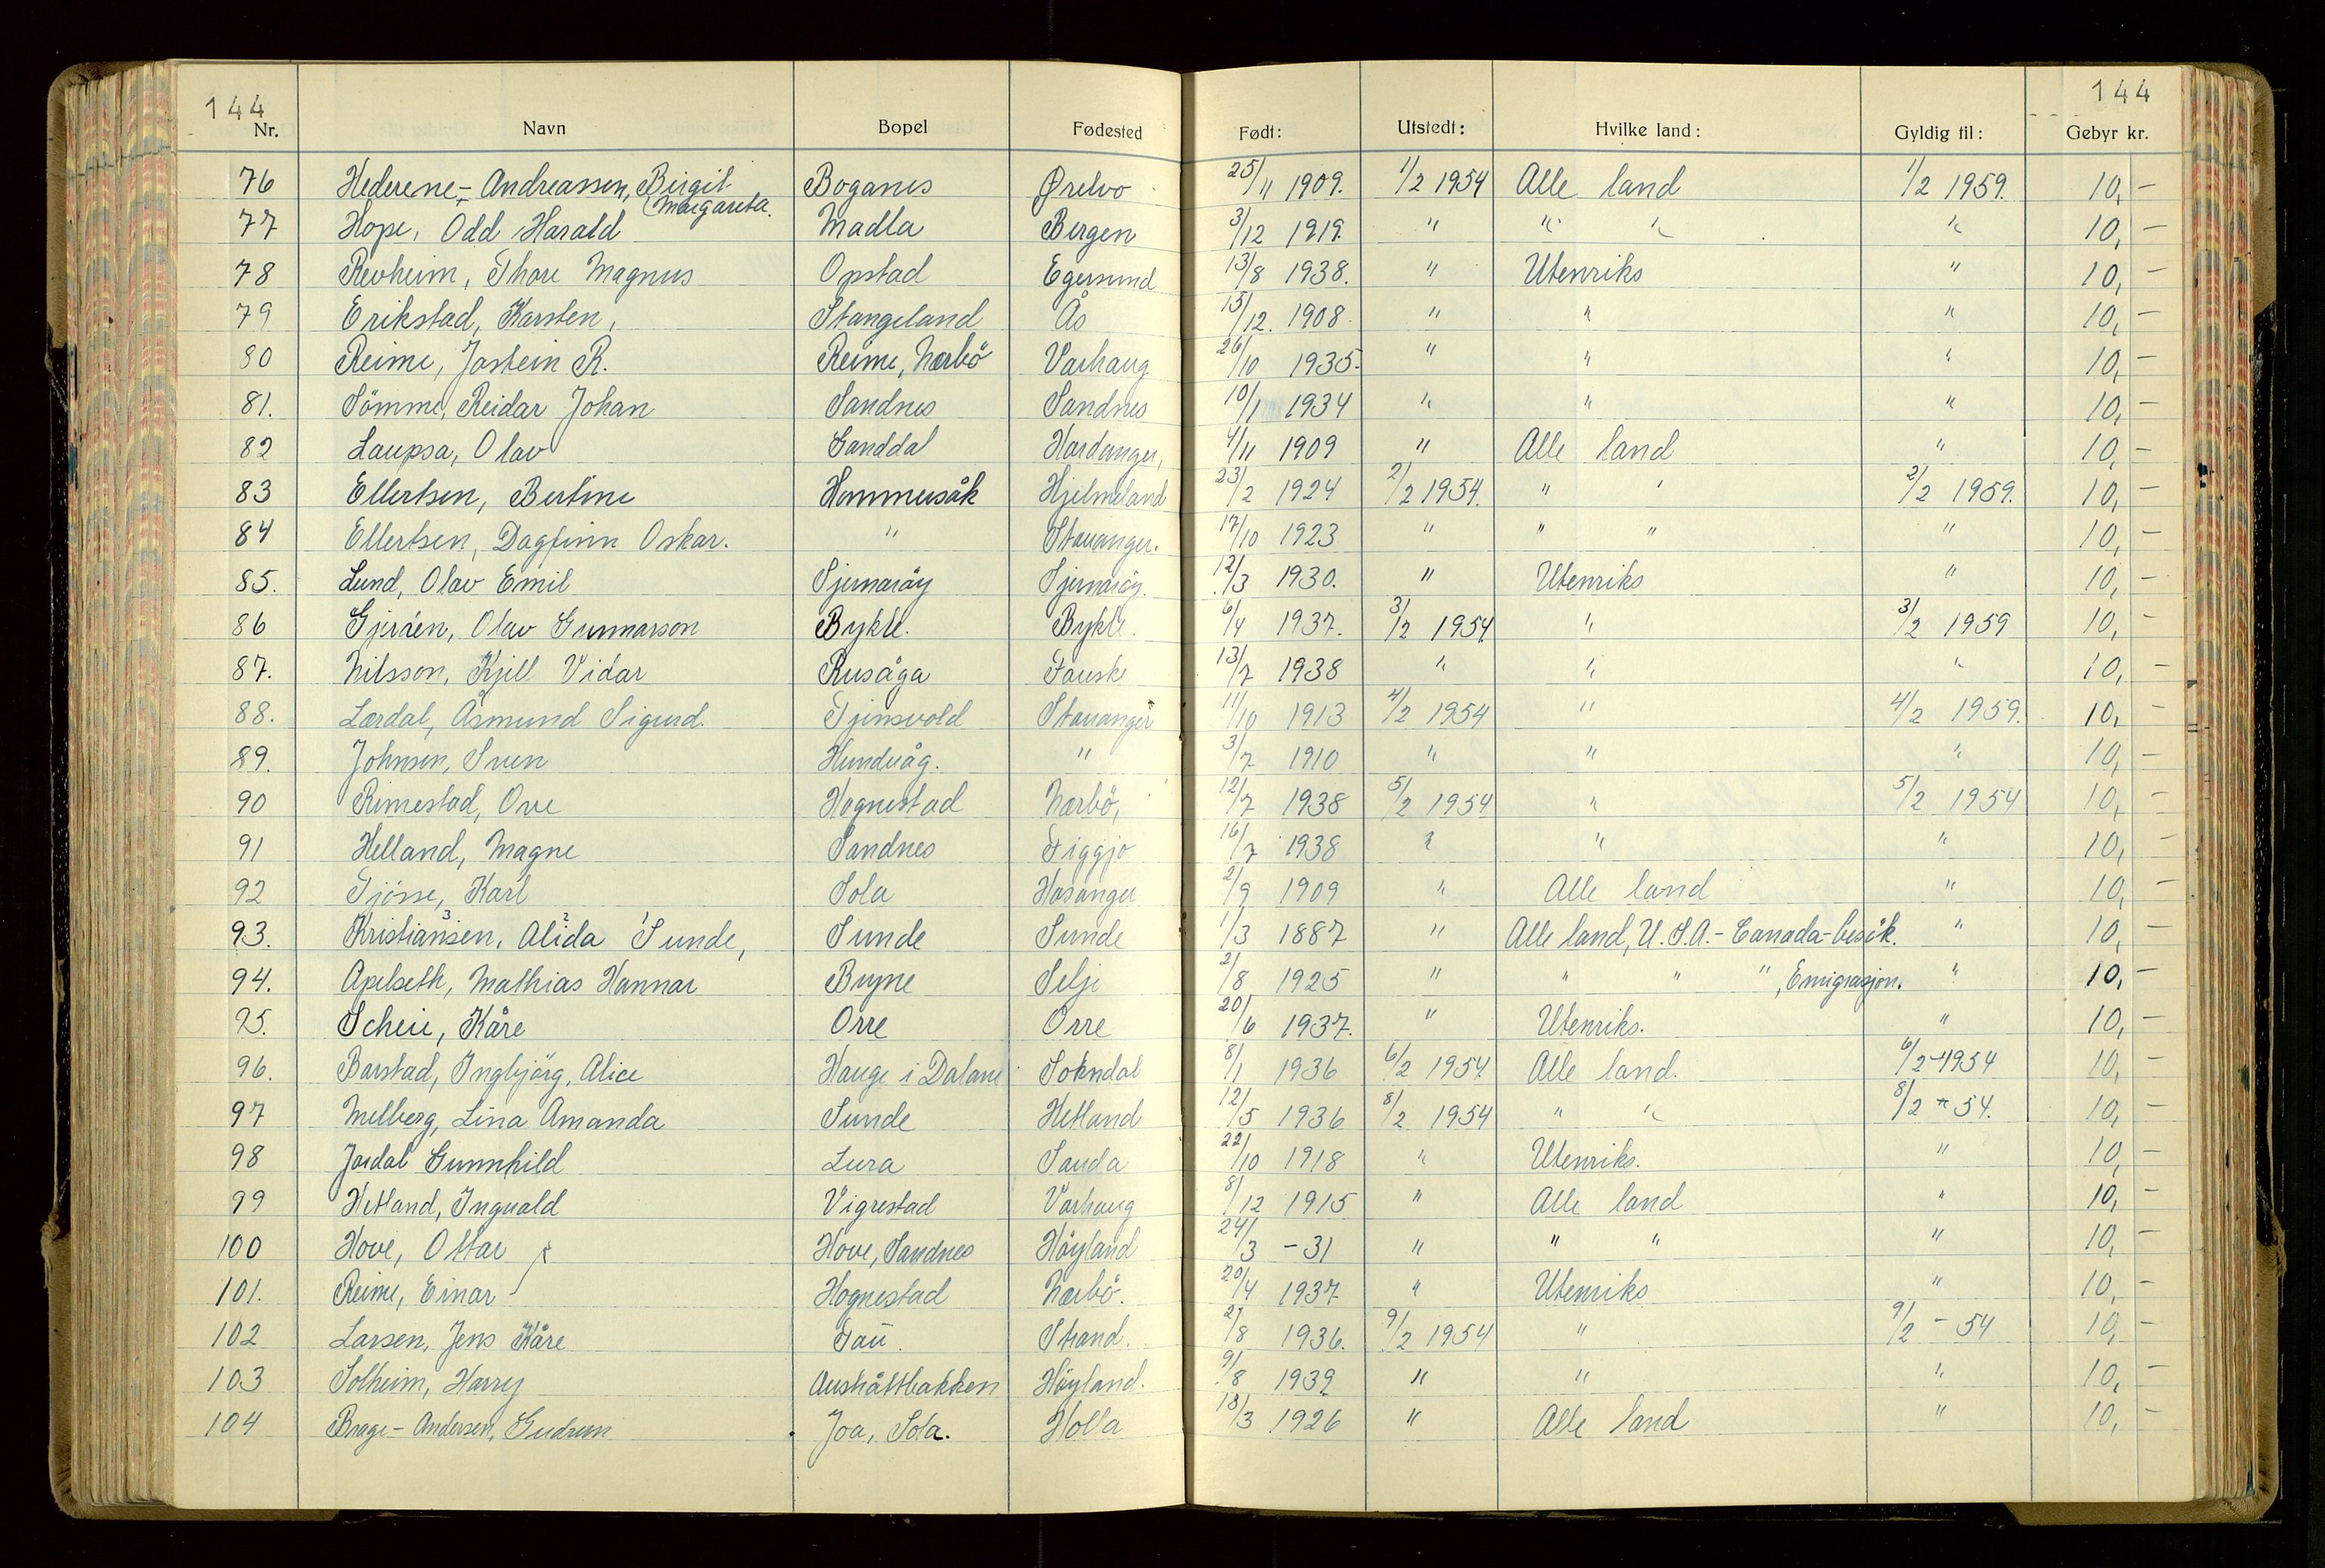 144 144
Nr. Navn Bopel Fødested Født: Utstedt: Hvilke land: Gyldig til: Gebyr kr.
76 Hederene-Andreassen, Birgit Boganes Ørelvo 25/11 1909. 1/2 1954 Alle land 1/2 1959. 10,-
Margareta.
77 Hope, Odd Harald Madla Bergen 3/12 1919. " " " " 10,-
78 Revheim, Thore Magnus Opstad Egersund 13/8 1938. " Utenriks " 10,-
79 Erikstad, Karsten, Stangeland Ås 15/12. 1908. " " " 10,-
80 Reime, Jostein R. Reime, Nærbö Varhaug 26/10 1935. " " " 10,-
81. Sömme, Reidar Johan Sandnes Sandnes 10/1 1934 " " " 10,-
82 Laupsa, Olav Ganddal Hardanger, 4/11 1909 " Alle land " 10,-
83 Ellertsen, Bertine Hommersåk Hjelmeland 23/2 1924 2/2 1954. " " 2/2 1959. 10,-
84 Ellertsen, Dagfinn Oskar. " Stavanger. 17/10 1923 " " " " 10,-
85. Lund, Olav Emil Sjernaröy Sjernaröy. 12/3 1930. " Utenriks " 10,-
86 Gjerden, Olav Gunnarson Bykle. Bykle. 6/4 1937. 3/2 1954 " 3/2 1959 10,-
87. Nilsson, Kjell Vidar Rusåga Fauske 13/7 1938 " " " 10,-
88. Lærdal, Åsmund Sigurd. Tjensvold Stavanger 11/10 1913 4/2 1954 " 4/2 1959. 10,-
89. Johnsen, Sven Hundvåg. " 3/7 1910 " " " 10,-
90 Rimestad, Ove Hognestad Nærbö, 12/7 1938 5/2 1954 " 5/2 1954 10,-
91 Helland, Magne Sandnes Figgjo 16/7 1938 " " " 10,-
92 Tjösse, Karl Sola Hosanger 2/9 1909 " Alle land " 10,-
93. Kristiansen, Alida Sunde, Sunde Sunde 1/3 1887 " Alle land, U.S.A.-Canada-besök. " 10,-
94. Apelseth, Mathias Hannar Bryne Selje 2/8 1925 " " " ", Emigrasjon. " 10,-
95. Scheie, Kåre Orre Orre 20/6 1937. " Utenriks. " 10,-
96. Barstad, Ingbjörg, Alice Hauge i Dalane Sokndal 8/1 1936 6/2 1954 Alle land. 6/2-1954 10,-
97 Melberg, Lina Amanda Sunde Hetland 12/5 1936 8/2 1954 " " 8/2 - 54. 10,-
98 Jordal Gunnhild Lura Sauda 22/10 1918 " Utenriks. " 10,-
99 Hetland, Ingvald Vigrestad Varhaug 8/12 1915 " Alle land " 10,-
100 Hove, Ottar Hove, Sandnes Höyland 24/3 -31 " " " " 10,-
101. Reime, Einar Hognestad Nærbö. 20/4 1937 " Utenriks " 10,-
102 Larsen, Jens Kåre Tau Strand. 2/8 1936. 9/2 1954 " 9/2 - 54 10,-
103 Solheim, Harry Austråttbakken Höyland. 9/8 1939 " " " 10,-
104 Brage-Andersen, Gudrun Joa, Sola. Holla 18/3 1926 " Alle land " 10,-